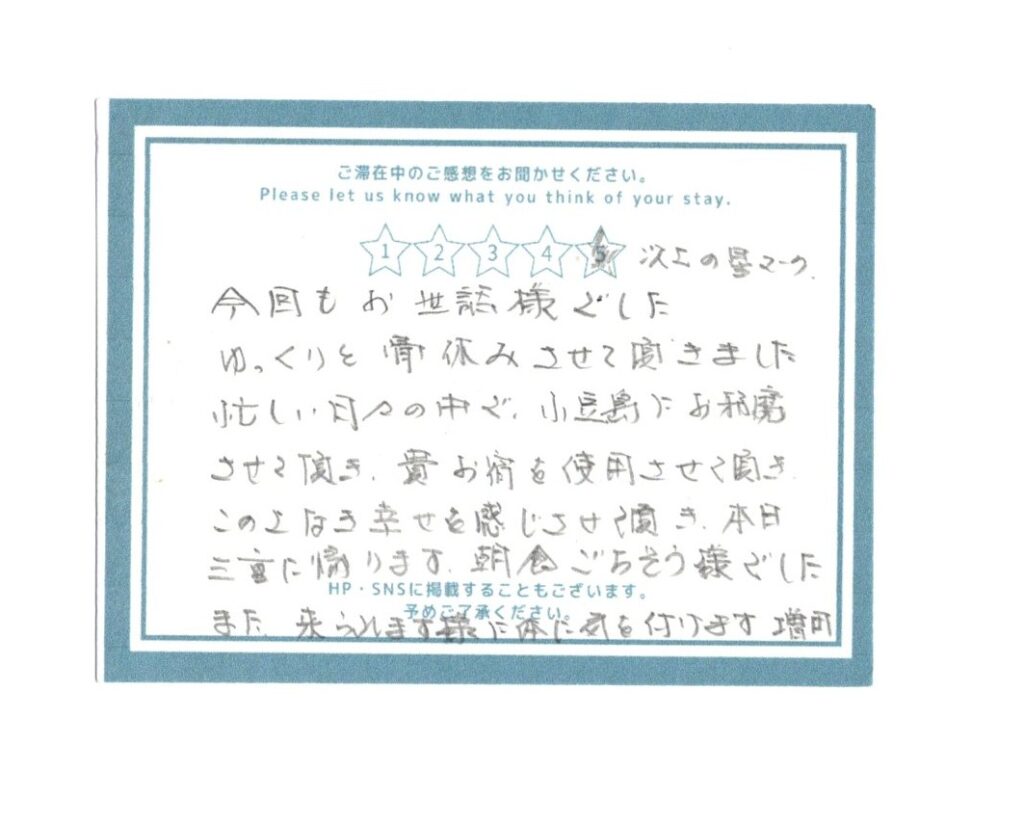 ご滞在中のご感想をお聞かせください。
Please let us know what you think of your stay.
1 2 3 4 5 以上の星マーク.
今回もお世話様でした
ゆっくりと骨休みさせて頂きました
忙しい日々の中で、小豆島にお邪魔
させて頂き、貴お宿を使用させて頂き
この上なき幸せを感じさせて頂き、本日
三重に帰ります。朝食ごちそう様でした
HP・SNSに掲載することもございます。
予めご了承ください。
また 来られます様に体に気を付けます 増町